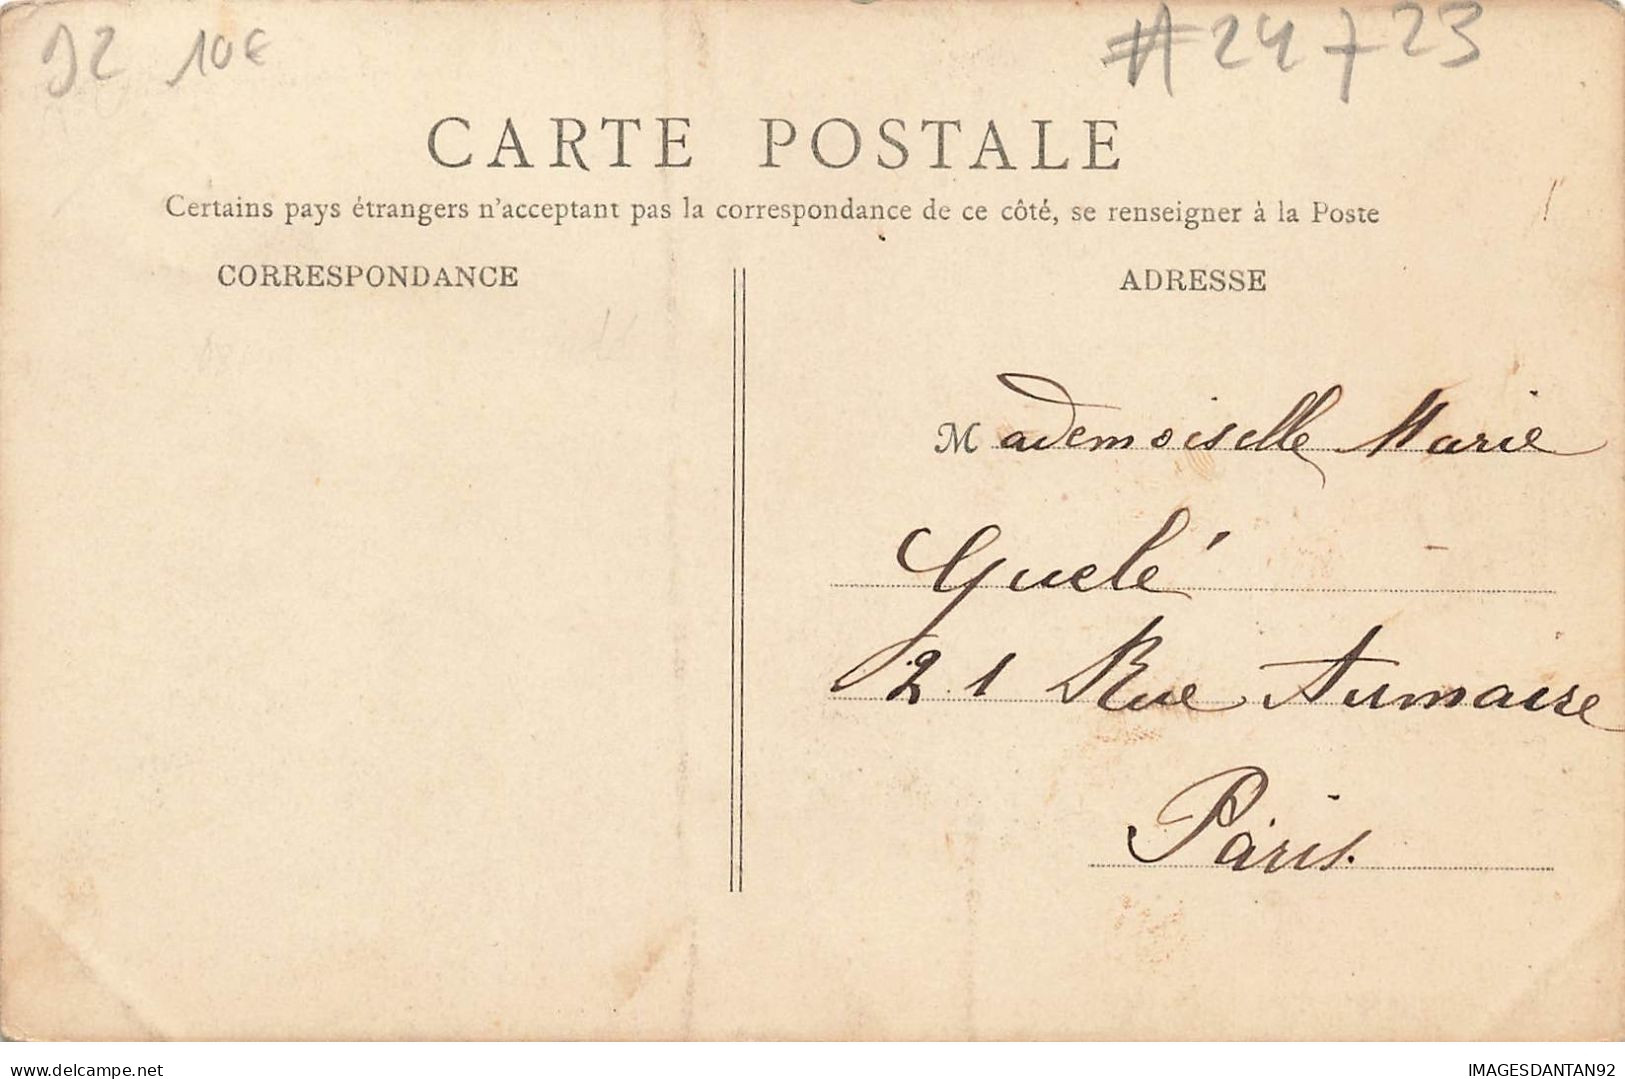 92 10€ #24723
CARTE POSTALE
Certains pays étrangers n'acceptant pas la correspondance de ce côté, se renseigner à la Poste
CORRESPONDANCE
ADRESSE
Mademoiselle Marie
Guelé
21 Rue Aumaire
Paris.
Delcampe.net
IMAGESDANTAN92